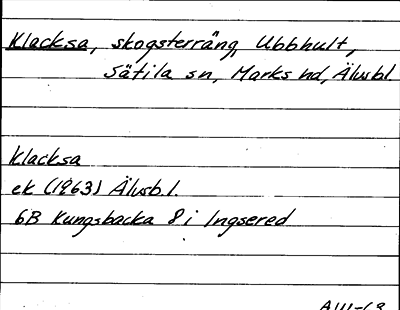 Klacksa, skogsterräng, Ubbhult,
Sätila sn, Marks hd, Älvsb.l
Klacksa
ek (1963) Älvsb.l.
6B Kungsbacka 8 i Ingsered